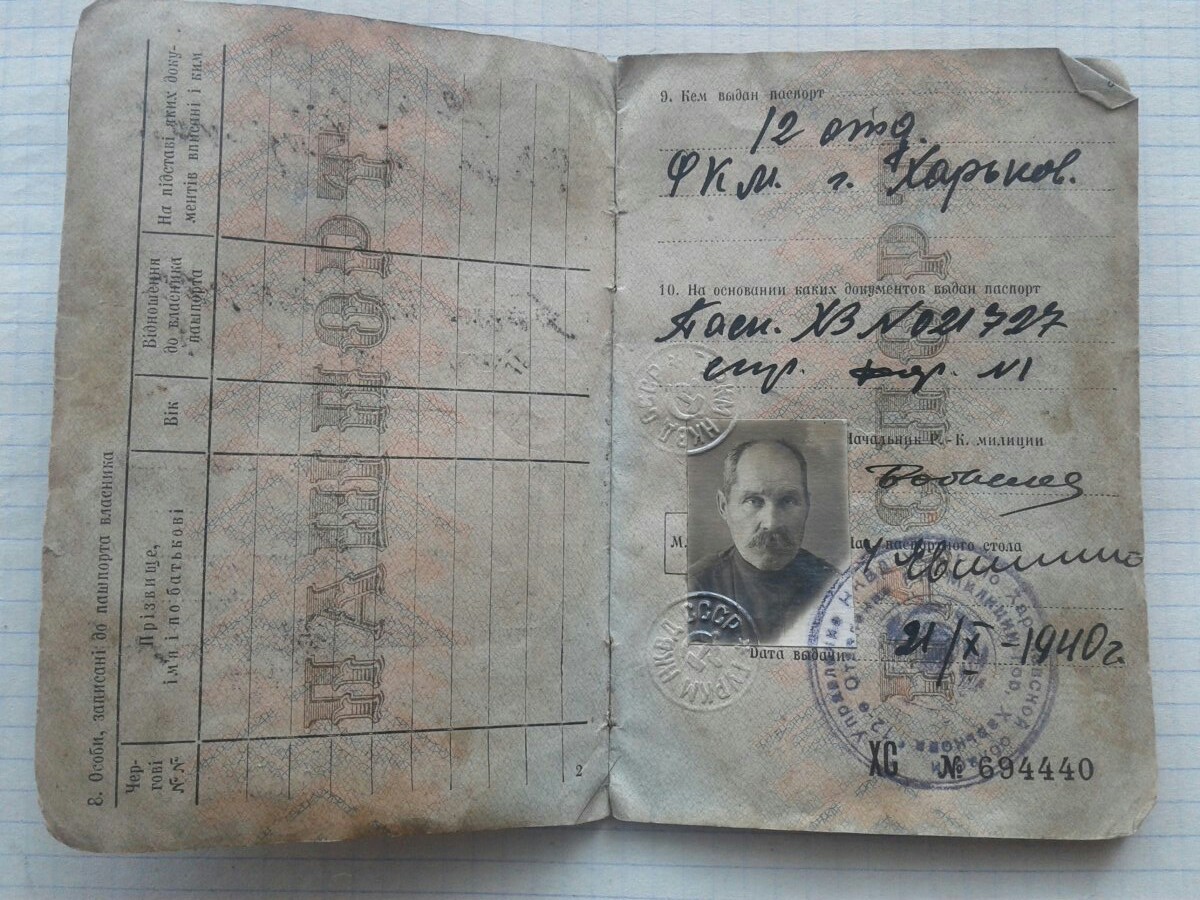 8. Особи, записані до пашпорта власника
Чер-
гові
№№
Прізвище,
ім'я і по батькові
Вік
Відношення
до власника
пашпорта
На підставі яких доку-
ментів вписані і ким
ПАШПОРТ
2
9. Кем выдан паспорт
12 отд.
РКМ. г. Харьков.
10. На основании каких документов выдан паспорт
Пасп. ХВ №021727
стр. №1
ГУРКМ НКВД СССР
Начальник Р.-К. милиции
М.
Нач. паспортного стола
ГУРКМ НКВД СССР
Дата выдачи 21/X-1940г.
Управление НКВД по Харьковской области
12-е Отделение милиции гор. Харькова
ХС № 694440